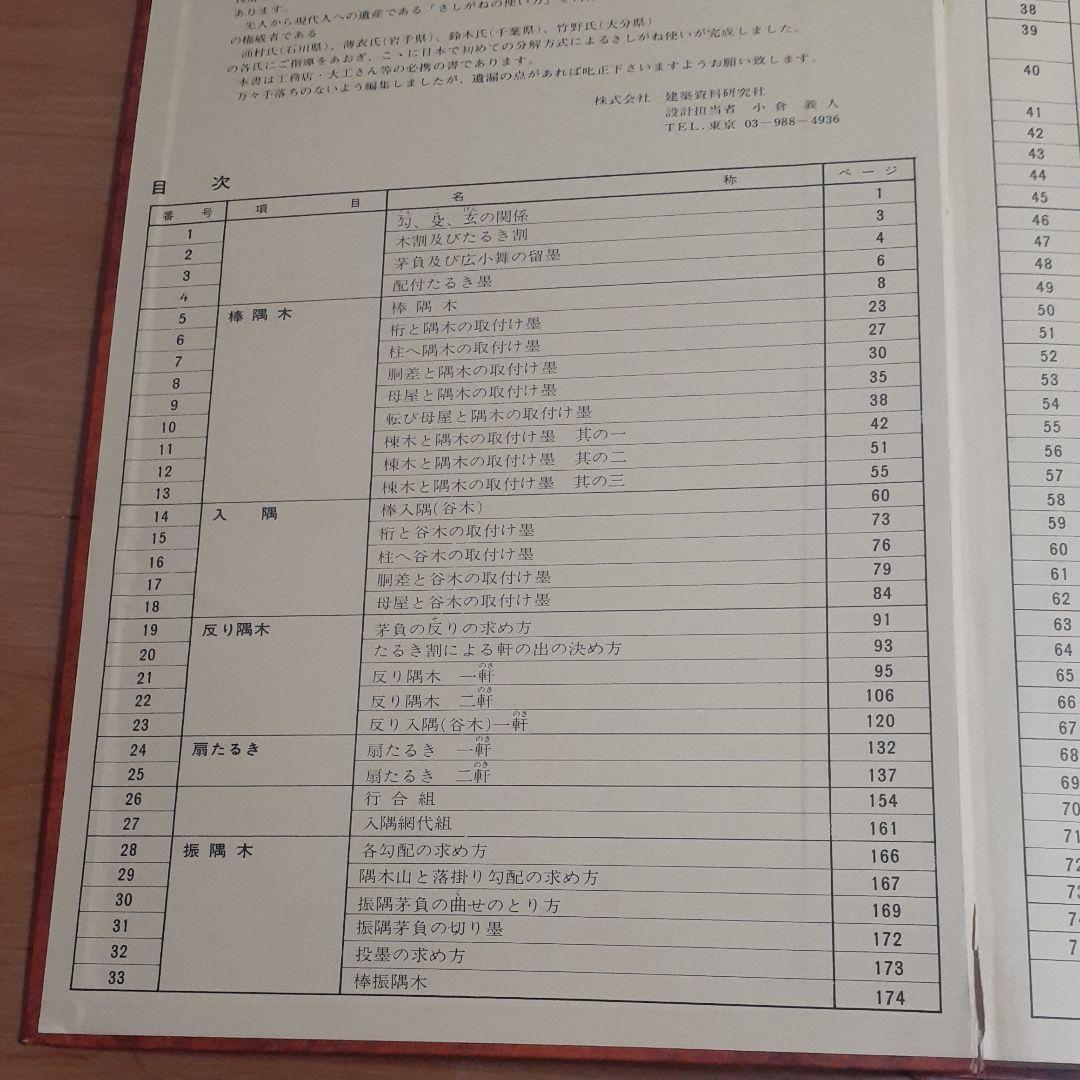 あります。
先人から現代人への遺産である「さしがねの使い方」を
の権威者である
浦村氏(石川県)、薄衣氏(岩手県)、鈴木氏(千葉県)、竹野氏(大分県)
の各氏にご指導をあおぎ、こゝに日本で初めての分解方式によるさしがね使いが完成しました。
本書は工務店・大工さん等の必携の書であります。
万々手落ちのないよう編集しましたが、遺漏の点があれば叱正下さいますようお願い致します。
株式会社 建築資料研究社
設計担当者 小倉義人
TEL.東京 03-988-4936
目 次
番号 項目 名称 ページ
1 勾、殳、玄の関係 1
2 木割及びたるき割 3
3 茅負及び広小舞の留墨 4
4 配付たるき墨 6
5 棒隅木 棒隅木 8
6 桁と隅木の取付け墨 23
7 柱へ隅木の取付け墨 27
8 胴差と隅木の取付け墨 30
9 母屋と隅木の取付け墨 35
10 転び母屋と隅木の取付け墨 38
11 棟木と隅木の取付け墨 其の一 42
12 棟木と隅木の取付け墨 其の二 51
13 棟木と隅木の取付け墨 其の三 55
14 入隅 棒入隅(谷木) 60
15 桁と谷木の取付け墨 73
16 柱へ谷木の取付け墨 76
17 胴差と谷木の取付け墨 79
18 母屋と谷木の取付け墨 84
19 反り隅木 茅負の反りの求め方 91
20 たるき割による軒の出の決め方 93
21 反り隅木 一軒 95
22 反り隅木 二軒 106
23 反り入隅(谷木)一軒 120
24 扇たるき 扇たるき 一軒 132
25 扇たるき 二軒 137
26 行合組 154
27 入隅網代組 161
28 振隅木 各勾配の求め方 166
29 隅木山と落掛り勾配の求め方 167
30 振隅茅負の曲せのとり方 169
31 振隅茅負の切り墨 172
32 投墨の求め方 173
33 棒振隅木 174
38
39
40
41
42
43
44
45
46
47
48
49
50
51
52
53
54
55
56
57
58
59
60
61
62
63
64
65
66
67
68
69
70
71
72
73